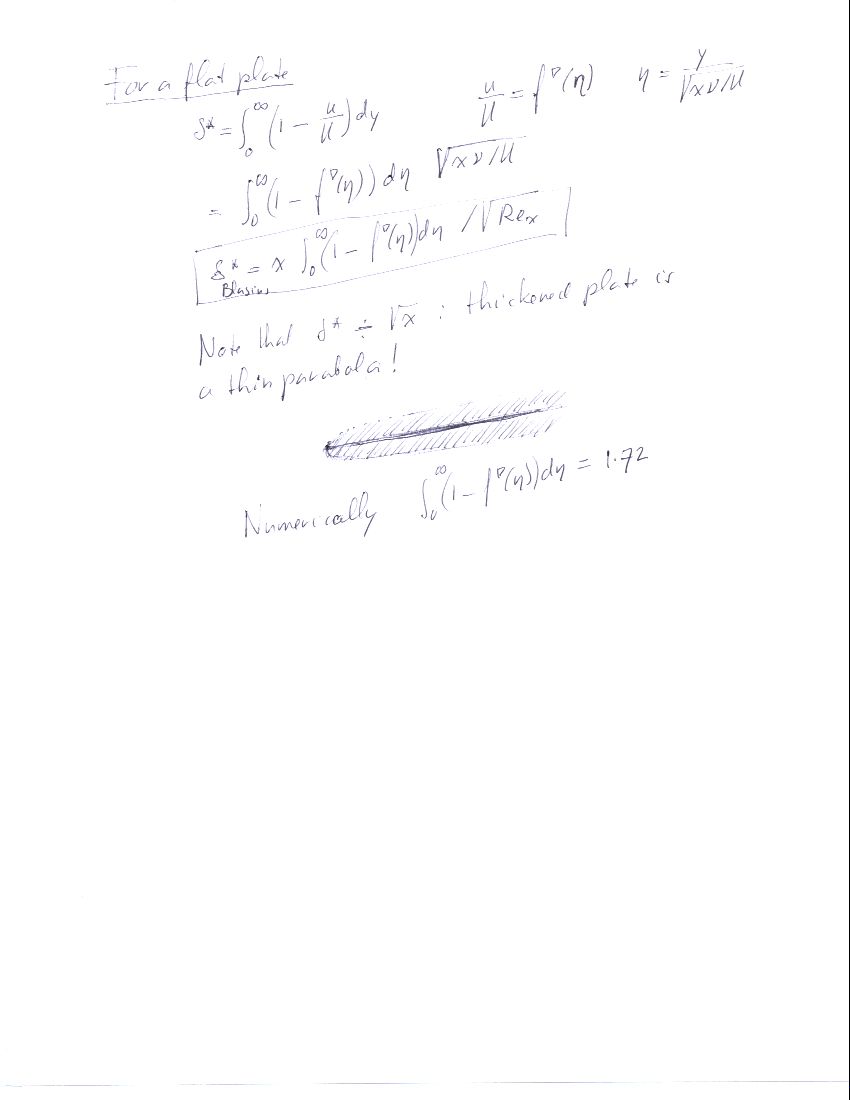 For a flat plate
δ* = ∫₀^∞ (1 − u/U) dy    u/U = f'(η)    η = y/√(xν/U)
= ∫₀^∞ (1 − f'(η)) dη √(xν/U)
δ*Blasius = x ∫₀^∞ (1 − f'(η)) dη /√Reₓ
Note that δ* ÷ √x : thickened plate is
a thin parabola!
Numerically ∫₀^∞ (1 − f'(η)) dη = 1.72